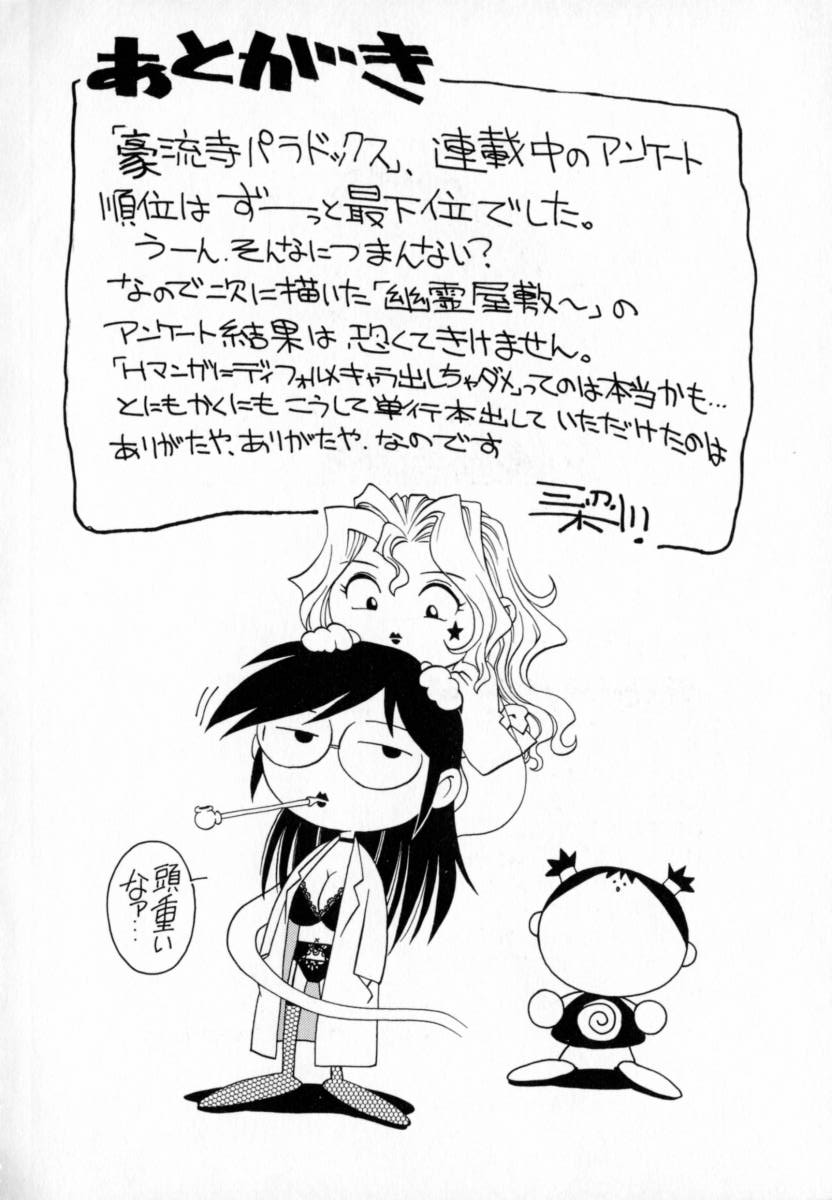 あとがき
「豪流寺パラドックス」、連載中のアンケート
順位は ずーーっと最下位でした。
うーん、そんなにつまんない？
なので二次に描いた「幽霊屋敷～」の
アンケート結果は、恐くてきけません。
「Hマンガにディフォルメキャラ出しちゃダメ」ってのは本当かも…
とにもかくにも こうして単行本出して いただけたのは
ありがたや、ありがたや、なのです
頭重い
なァ…